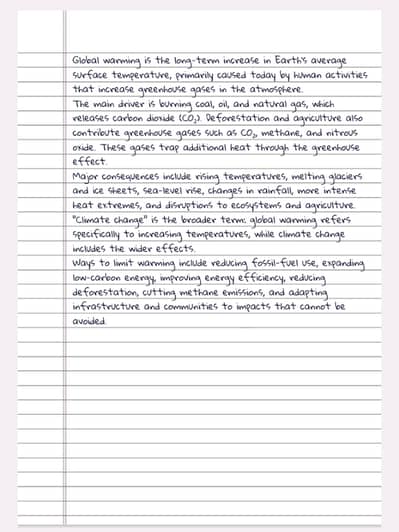 Global warming is the long-term increase in Earth's average
surface temperature, primarily caused today by human activities
that increase greenhouse gases in the atmosphere.
The main driver is burning coal, oil, and natural gas, which
releases carbon dioxide (CO₂). Deforestation and agriculture also
contribute greenhouse gases such as CO₂, methane, and nitrous
oxide. These gases trap additional heat through the greenhouse
effect.
Major consequences include rising temperatures, melting glaciers
and ice sheets, sea-level rise, changes in rainfall, more intense
heat extremes, and disruptions to ecosystems and agriculture.
"Climate change" is the broader term: global warming refers
specifically to increasing temperatures, while climate change
includes the wider effects.
Ways to limit warming include reducing fossil-fuel use, expanding
low-carbon energy, improving energy efficiency, reducing
deforestation, cutting methane emissions, and adapting
infrastructure and communities to impacts that cannot be
avoided.